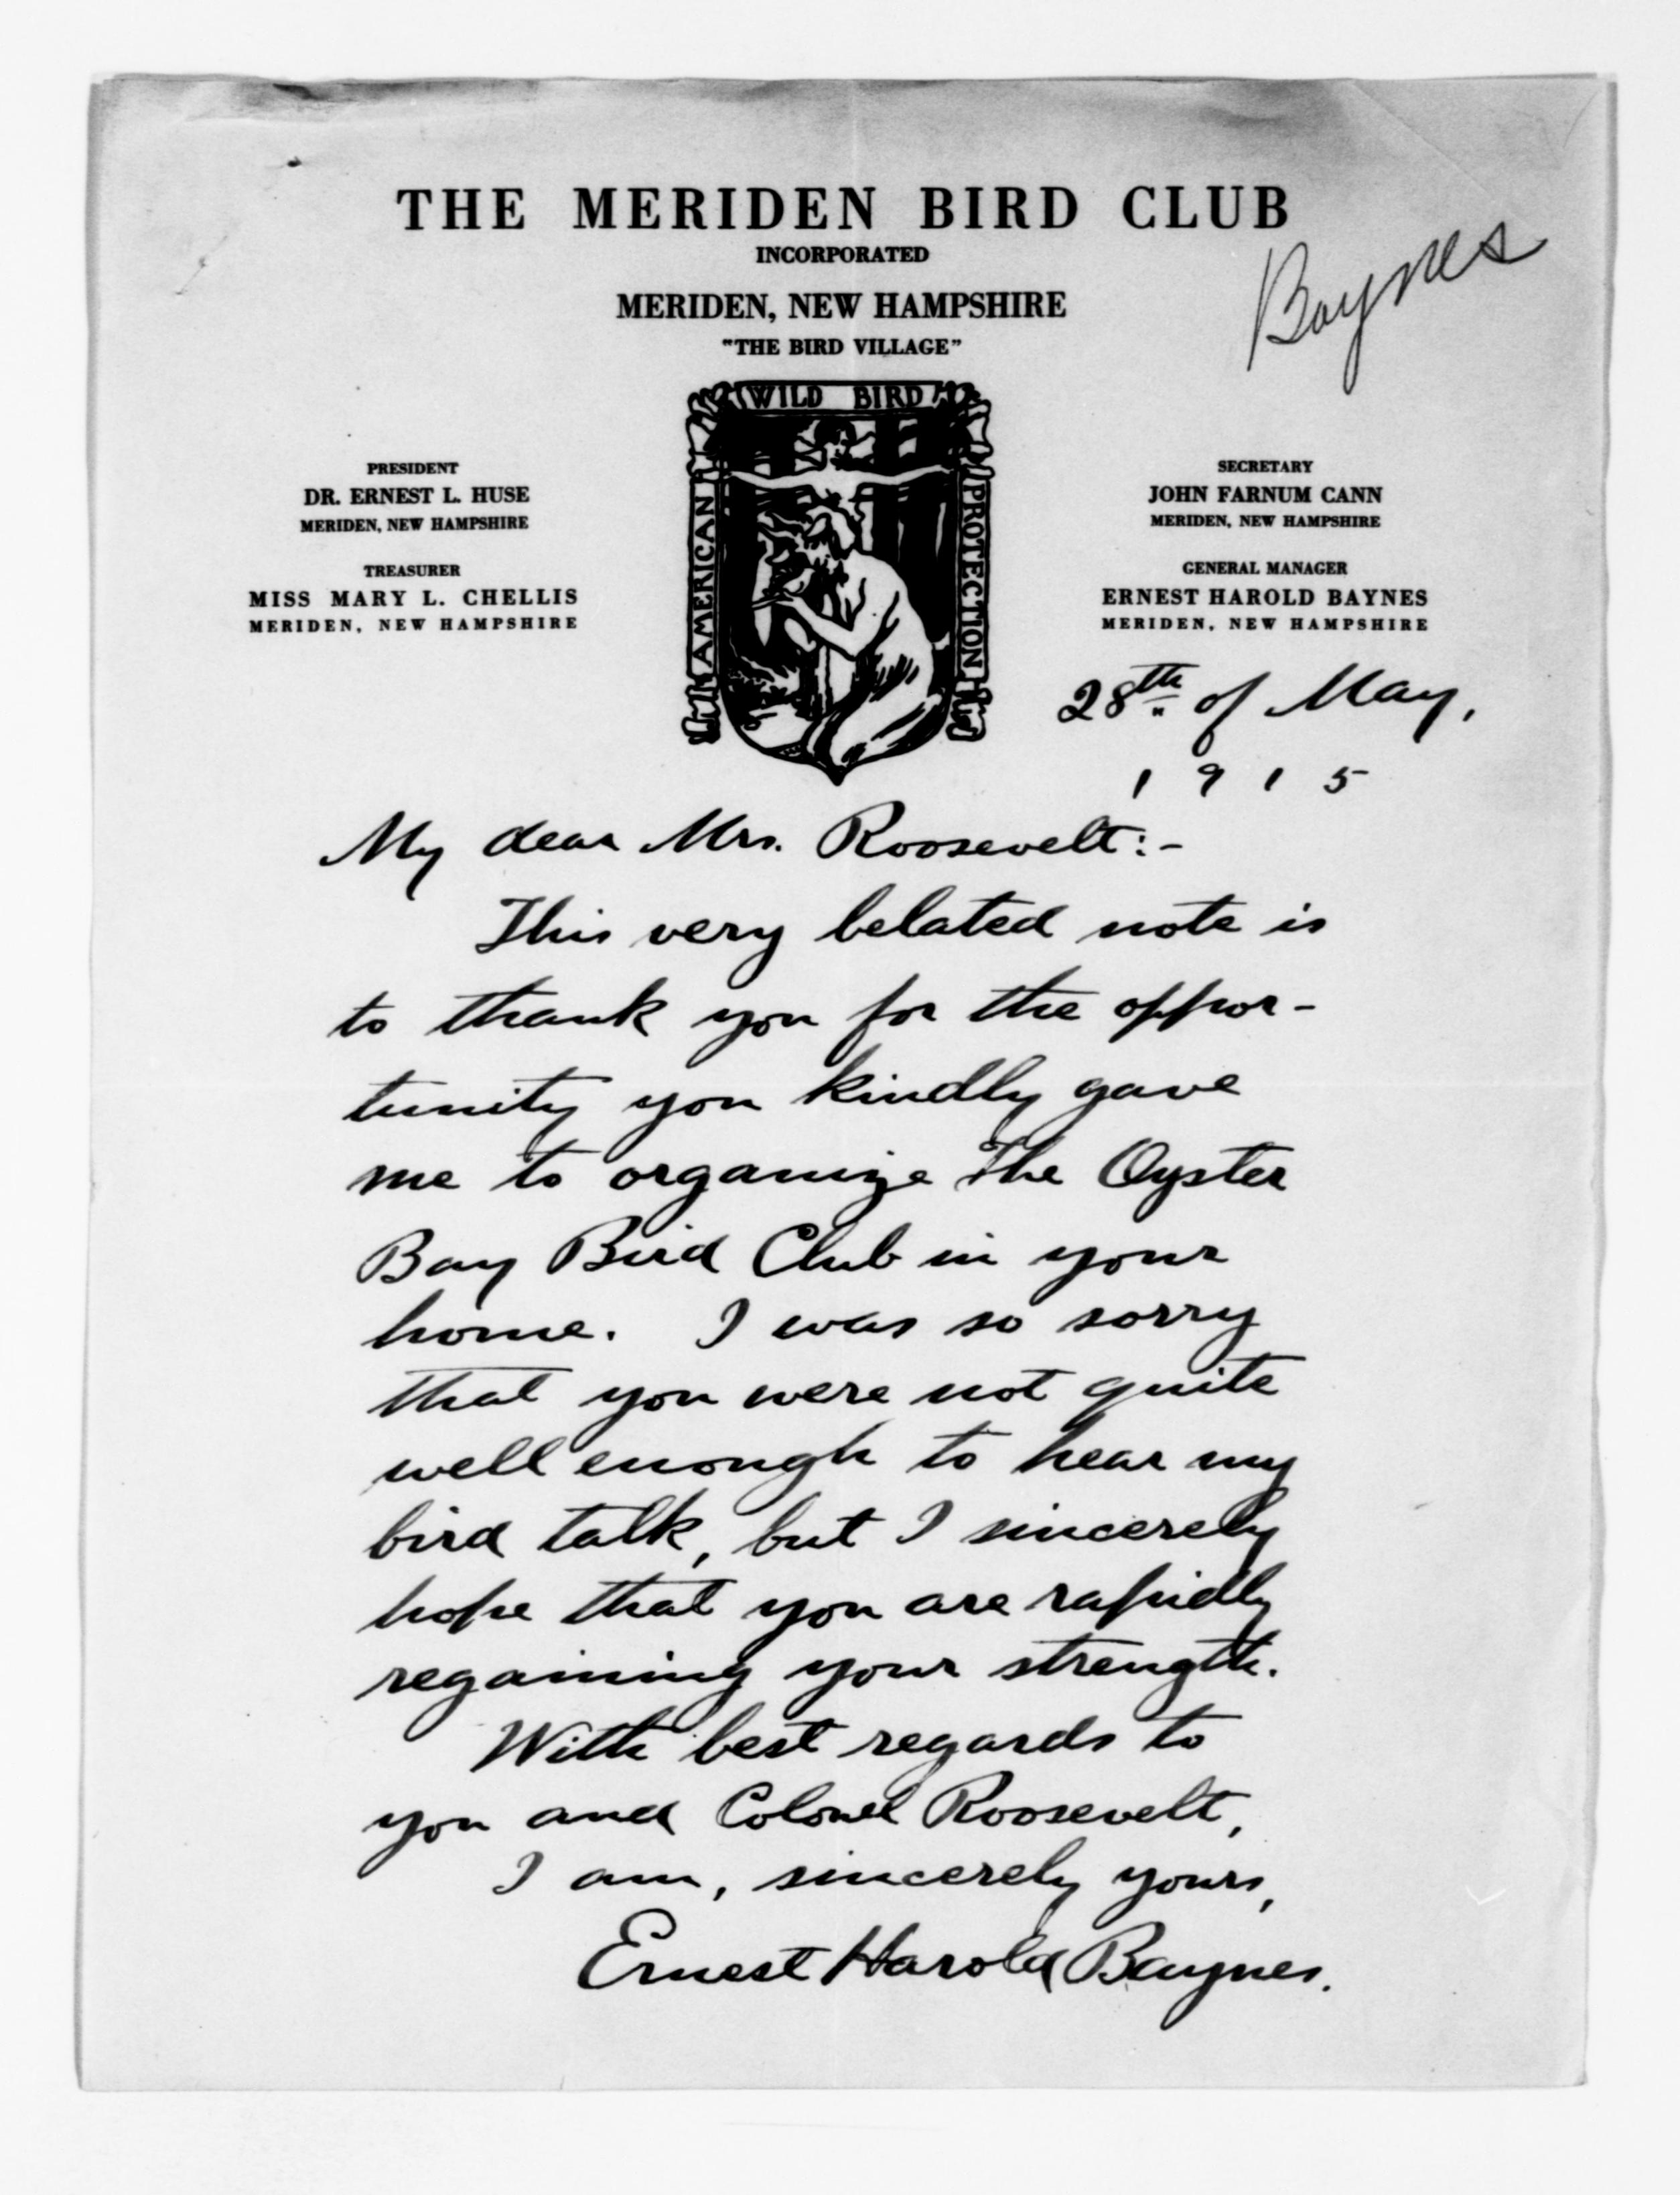 THE MERIDEN BIRD CLUB
INCORPORATED
MERIDEN, NEW HAMPSHIRE
"THE BIRD VILLAGE"
Baynes
WILD BIRD
AMERICAN
PROTECTION
PRESIDENT
DR. ERNEST L. HUSE
MERIDEN, NEW HAMPSHIRE
TREASURER
MISS MARY L. CHELLIS
MERIDEN, NEW HAMPSHIRE
SECRETARY
JOHN FARNUM CANN
MERIDEN, NEW HAMPSHIRE
GENERAL MANAGER
ERNEST HAROLD BAYNES
MERIDEN, NEW HAMPSHIRE
28th of May,
1915
My dear Mrs. Roosevelt:-
This very belated note is
to thank you for the oppor-
tunity you kindly gave
me to organize The Oyster
Bay Bird Club in your
home. I was so sorry
that you were not quite
well enough to hear my
bird talk, but I sincerely
hope that you are rapidly
regaining your strength.
With best regards to
you and Colonel Roosevelt,
I am, sincerely yours,
Ernest Harold Baynes.